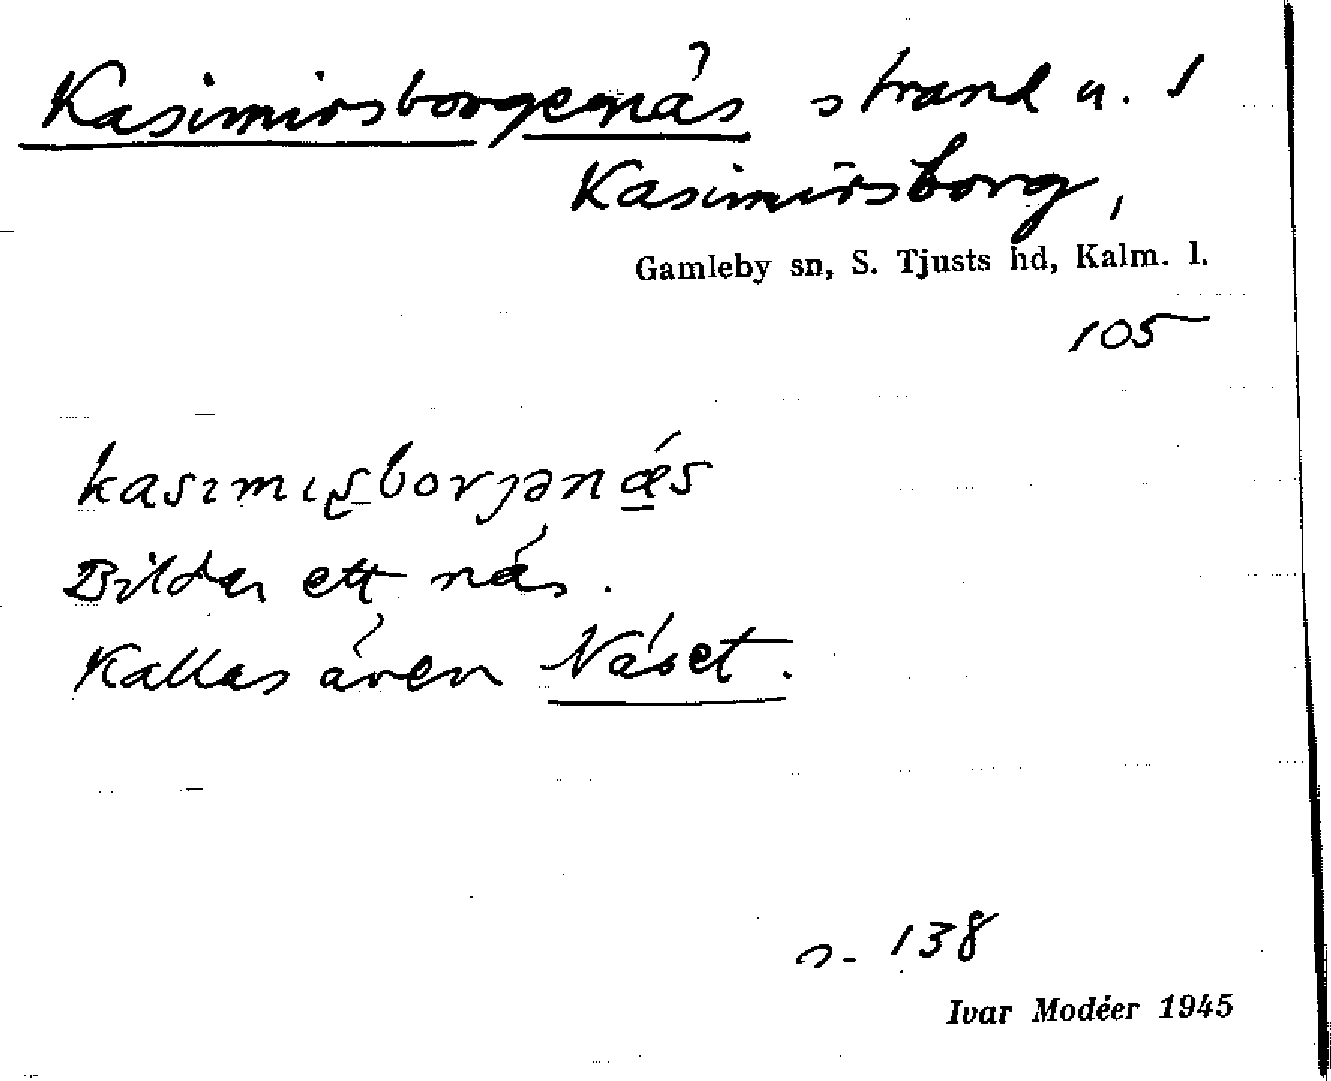 Kasimirsborgenäs strand u. 1
Kasimirsborg,
Gamleby sn, S. Tjusts hd, Kalm. l.
105
kasımıʂborjənǽs
Bildar ett näs.
Kallas även Näset.
s. 138
Ivar Modéer 1945